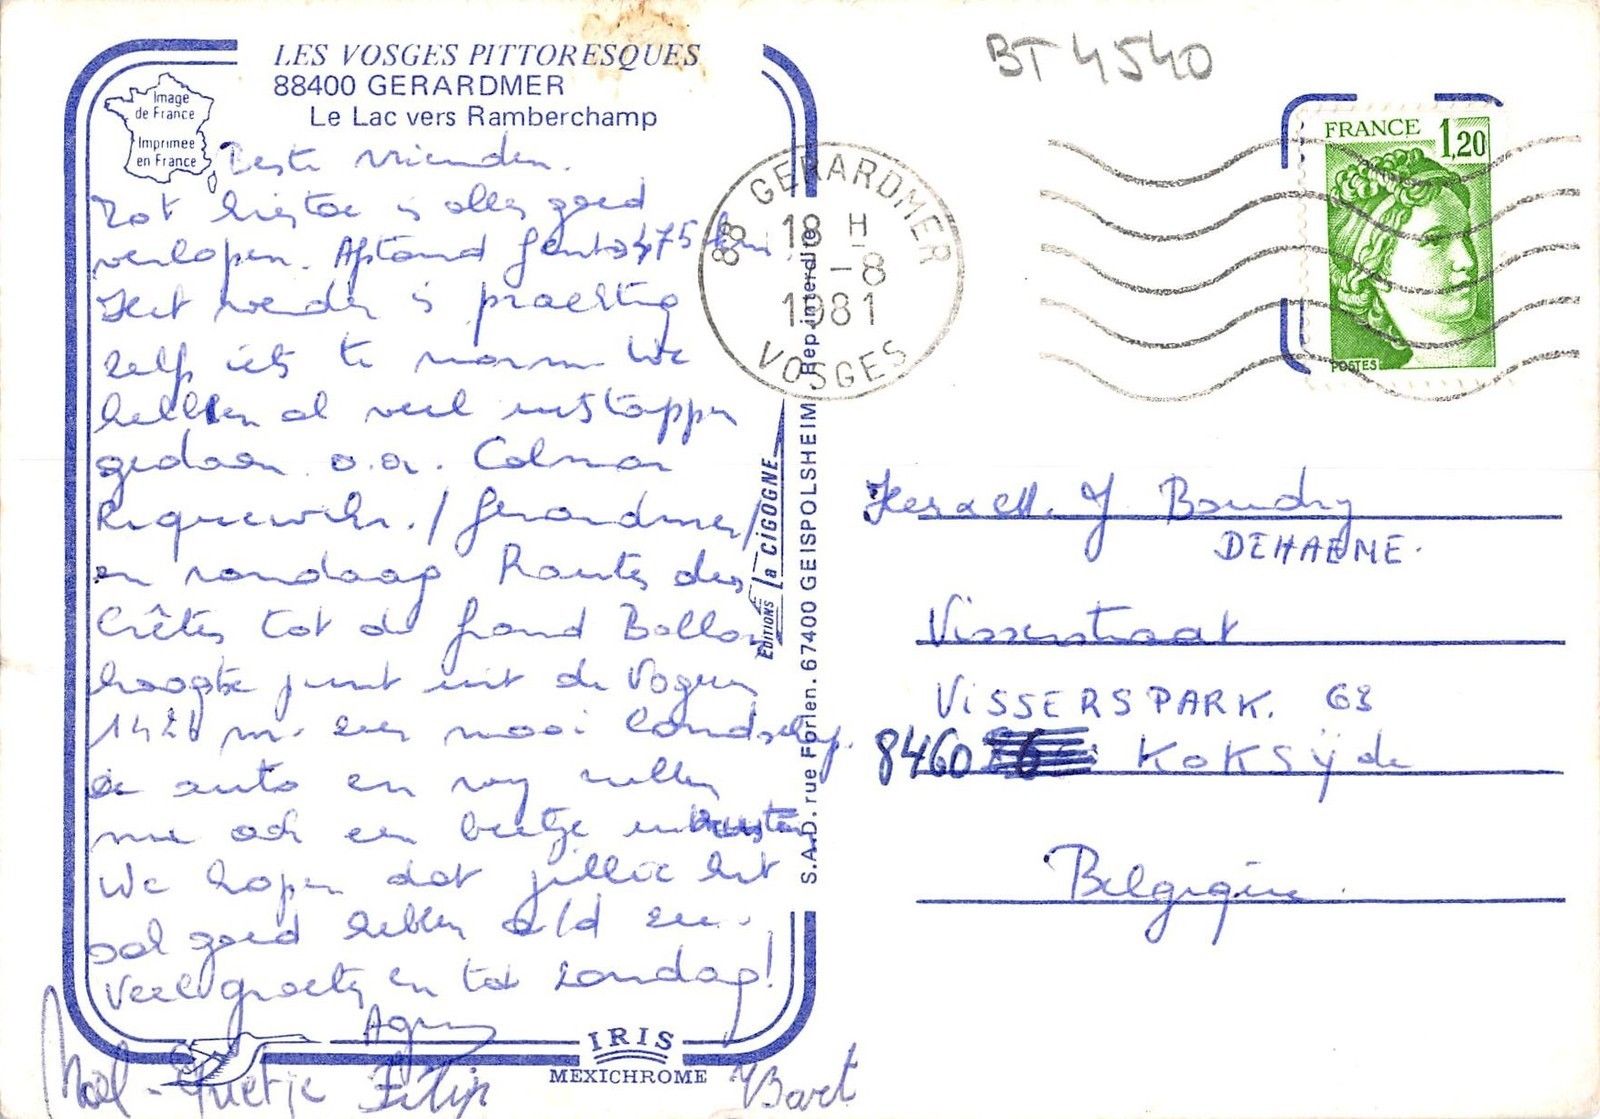 LES VOSGES PITTORESQUES
88400 GERARDMER
Le Lac vers Ramberchamp
Image
de France
Imprimée
en France
Beste vrienden.
Tot hiertoe is alles goed
verlopen. Afstand Gent 475 km.
Het weder is prachtig
zelfs iets te warm. We
hebben al veel uitstappen
gedaan o.a. Colmar
Riquewihr / Gerardmer /
en vandaag Routes des
Crêtes tot de Grand Ballon
hoogste punt uit de Vogezen
142 m. zeer mooi landschap.
de auto en wij zullen
nu ook een beetje uitrusten
We hopen dat jullie het
ook goed hebben a/d zee.
Veel groetjes en tot zondag!
Agnes
Noël - Grietje Filip Bart
IRIS
MEXICHROME
EDITIONS la CIGOGNE
S.A.D. rue Forlen. 67400 GEISPOLSHEIM Rep. interdite
BT 4540
88 GERARDMER
18 H
-8
1981
VOSGES
FRANCE 1,20
POSTES
J Boudry
DEHAENE.
Visserstraat
VISSERSPARK. 63
8460 KOKSijde
Belgique